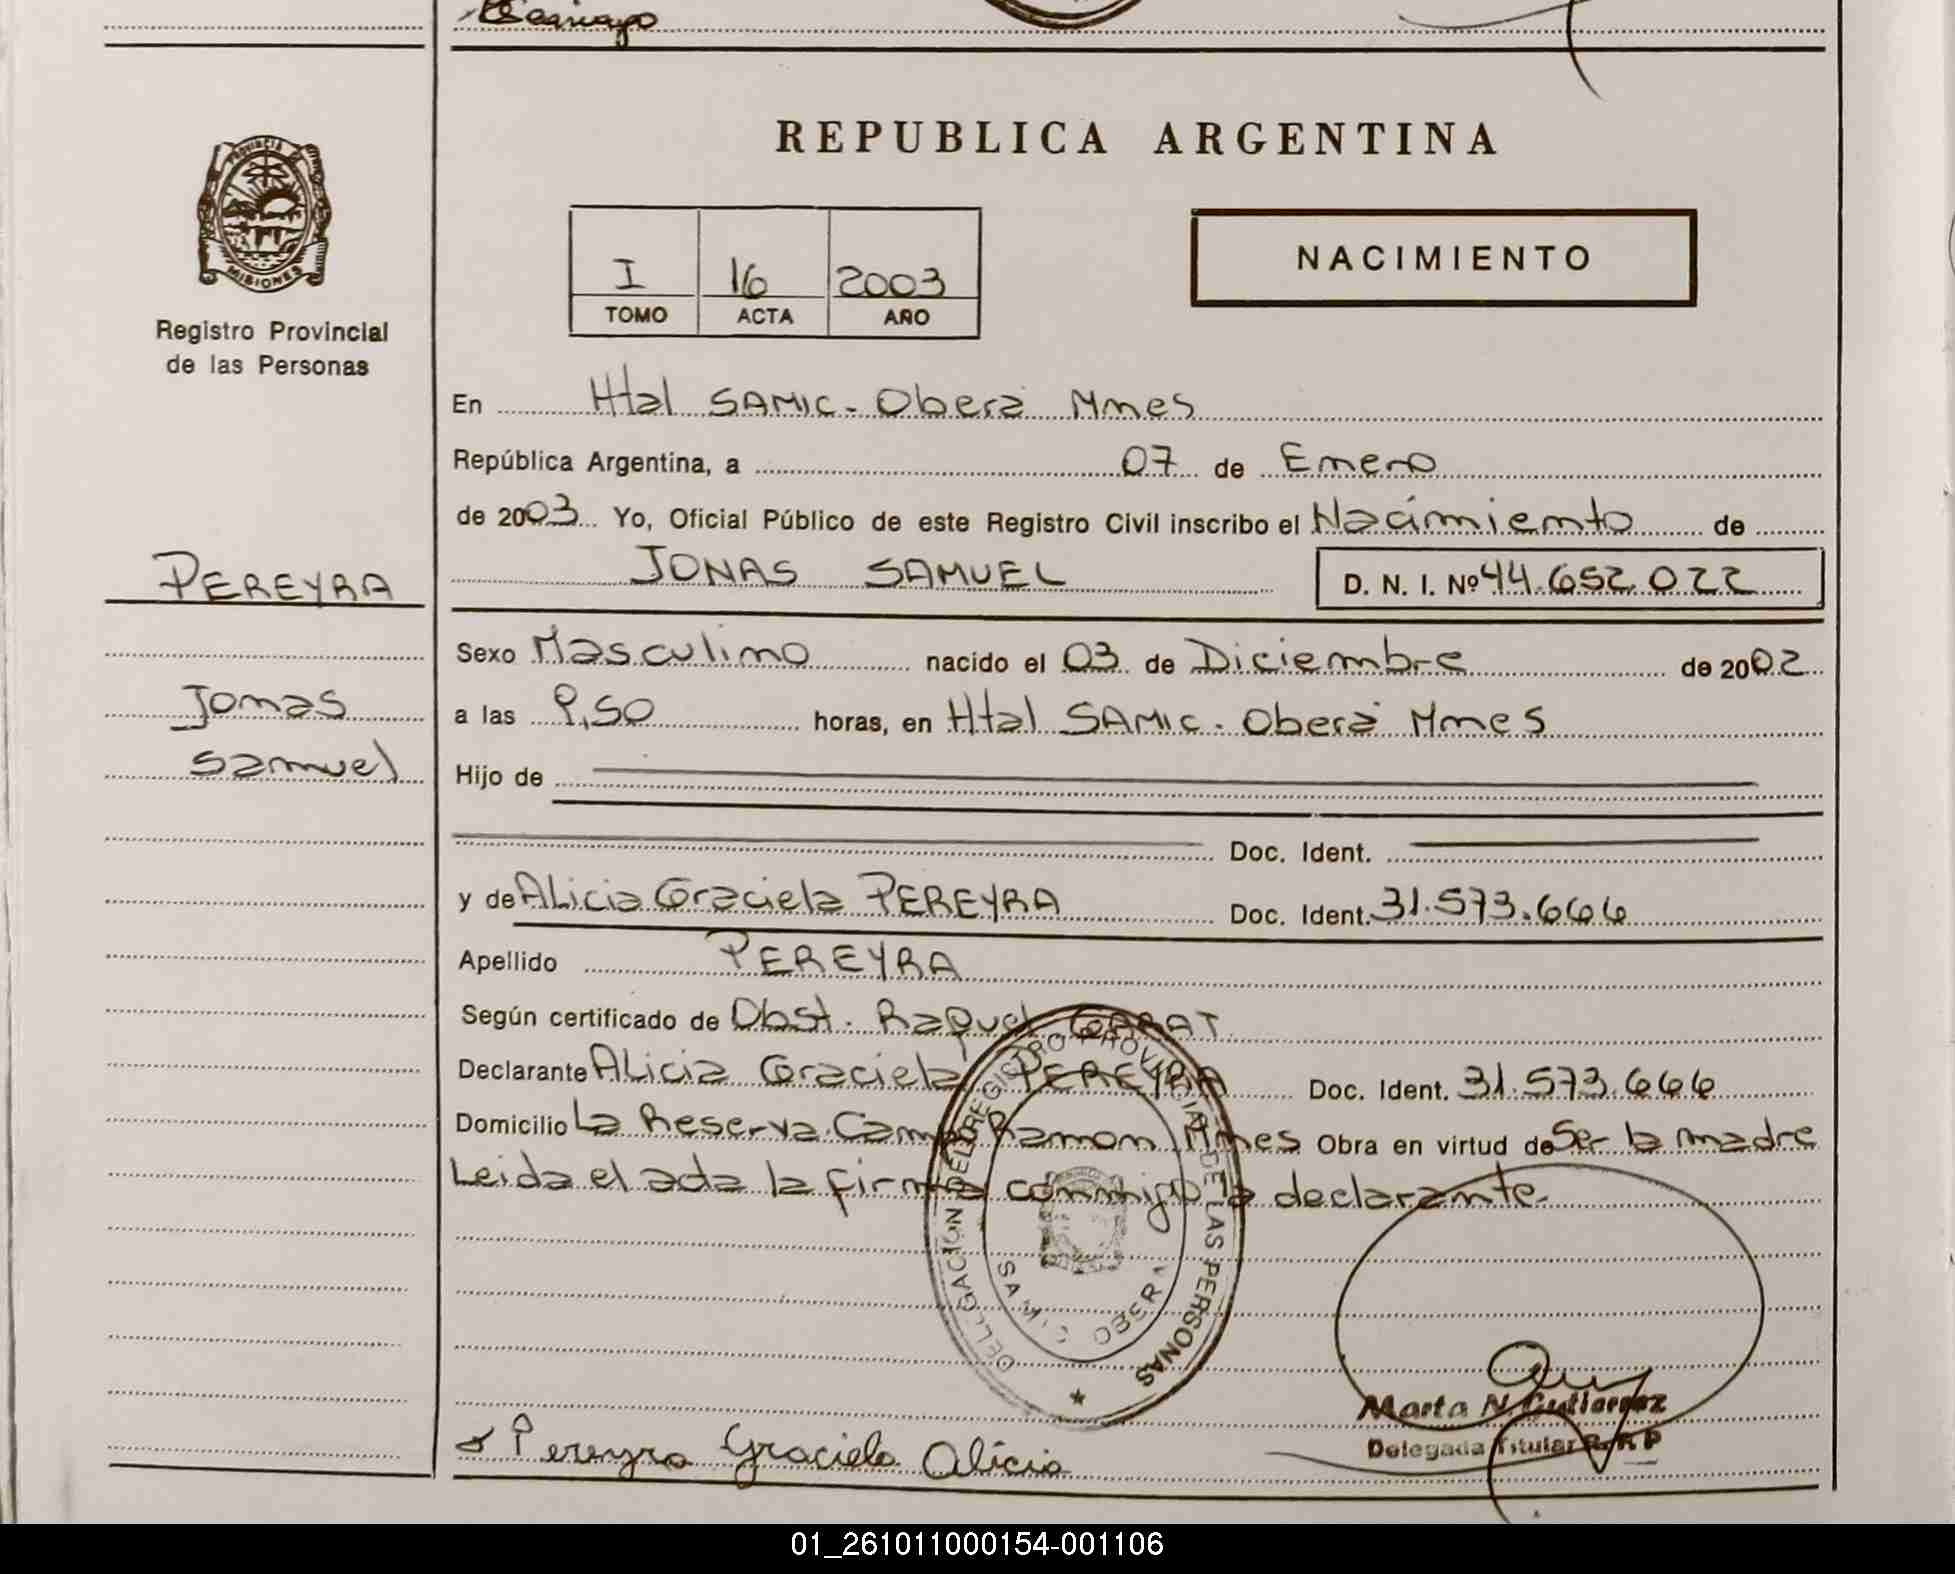 REPUBLICA ARGENTINA
PROVINCIA DE
MISIONES
Registro Provincial
de las Personas
I 16 2003
TOMO ACTA AÑO
NACIMIENTO
En Htal SAMIC - Oberá Mnes
República Argentina, a 07 de Enero
de 2003 Yo, Oficial Público de este Registro Civil inscribo el Nacimiento de
PEREYRA
JONAS SAMUEL D. N. I. Nº 44.652.022
Sexo Masculino nacido el 03 de Diciembre de 2002
Jonas
a las 9,50 horas, en Htal SAMIC - Oberá Mnes
Samuel
Hijo de
Doc. Ident.
y de Alicia Graciela PEREYRA Doc. Ident. 31.573.666
Apellido PEREYRA
Según certificado de Obst. Raquel GARAT
Declarante Alicia Graciela PEREYRA Doc. Ident. 31.573.666
Domicilio La Reserva Campo Ramon Mnes Obra en virtud de Ser la madre
Leida el acta la firma conmigo la declarante.
DELEGACION DEL REGISTRO PROVINCIAL DE LAS PERSONAS
SAMIC OBERA
Marta N. Gutierrez
Delegada Titular R. R. P
Pereyra Graciela Alicia
01_261011000154-001106